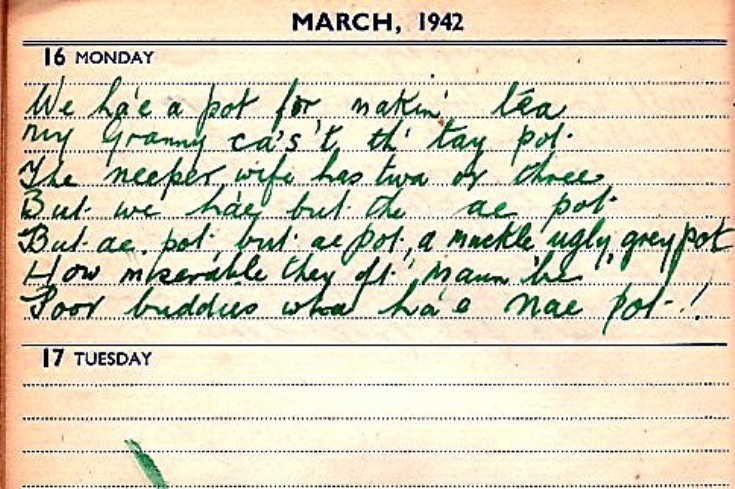 MARCH, 1942
16 MONDAY
We ha'e a pot for makin' tea
My Granny ca's't th' tay pot.
The neeper wife has twa or three
But we hae but the ae pot.
But ae pot, but ae pot, a muckle ugly grey pot
How miserable they oft' maun be
Poor buddies wha ha'e nae pot!
17 TUESDAY